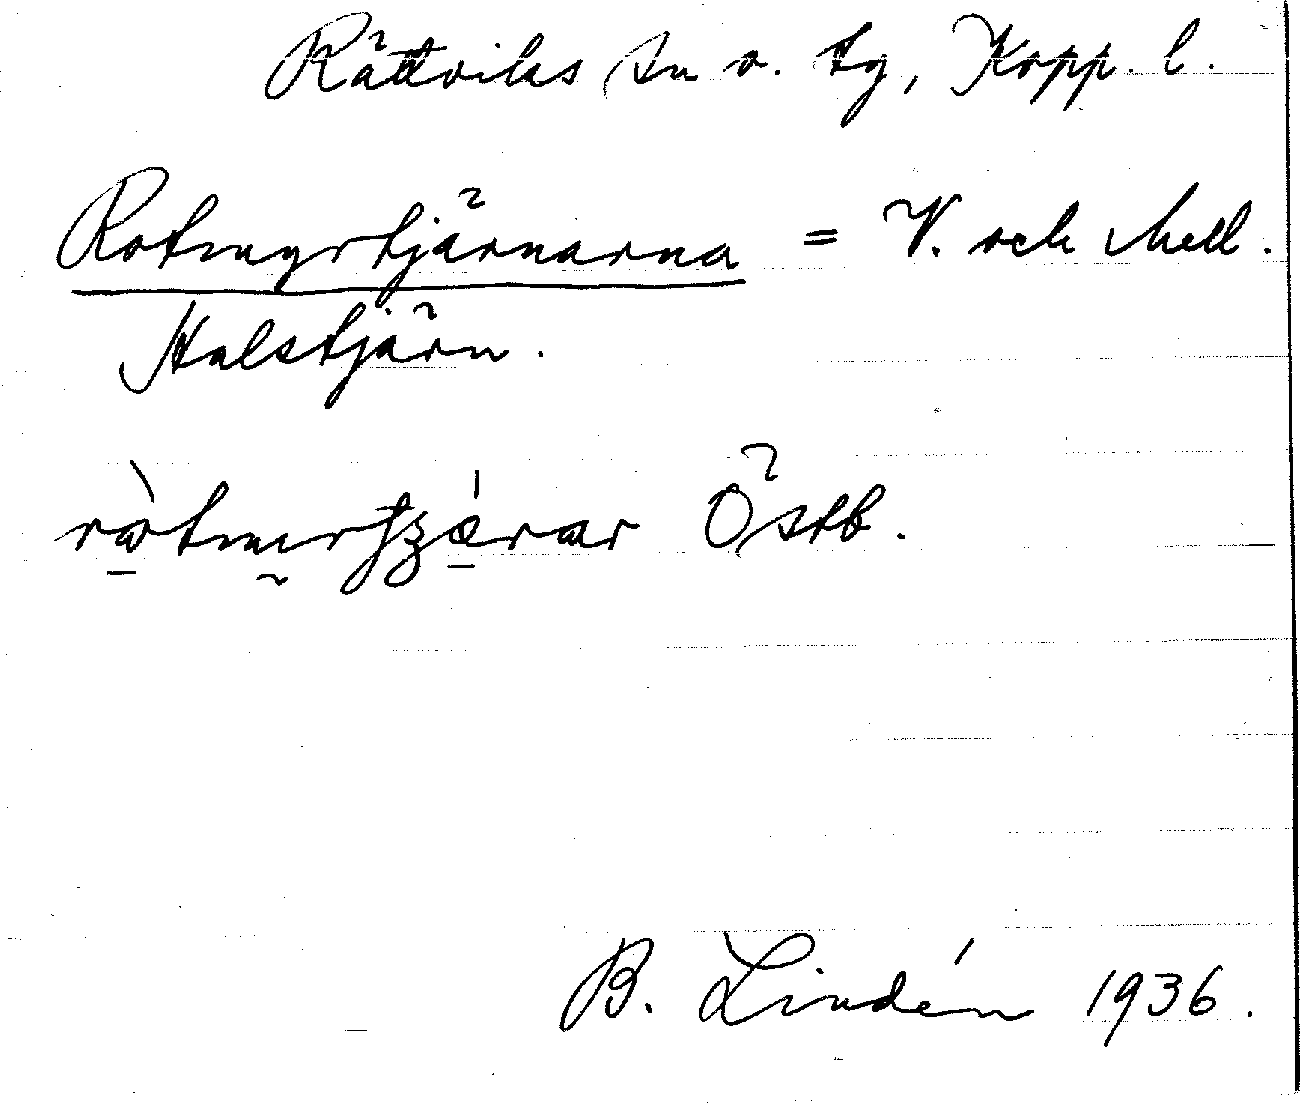 Rättviks sn o. tg, Kopp. l.
Rotmyrtjärnarna = V. och Mell.
Halstjärn.
Östb.
B. Lindén 1936.